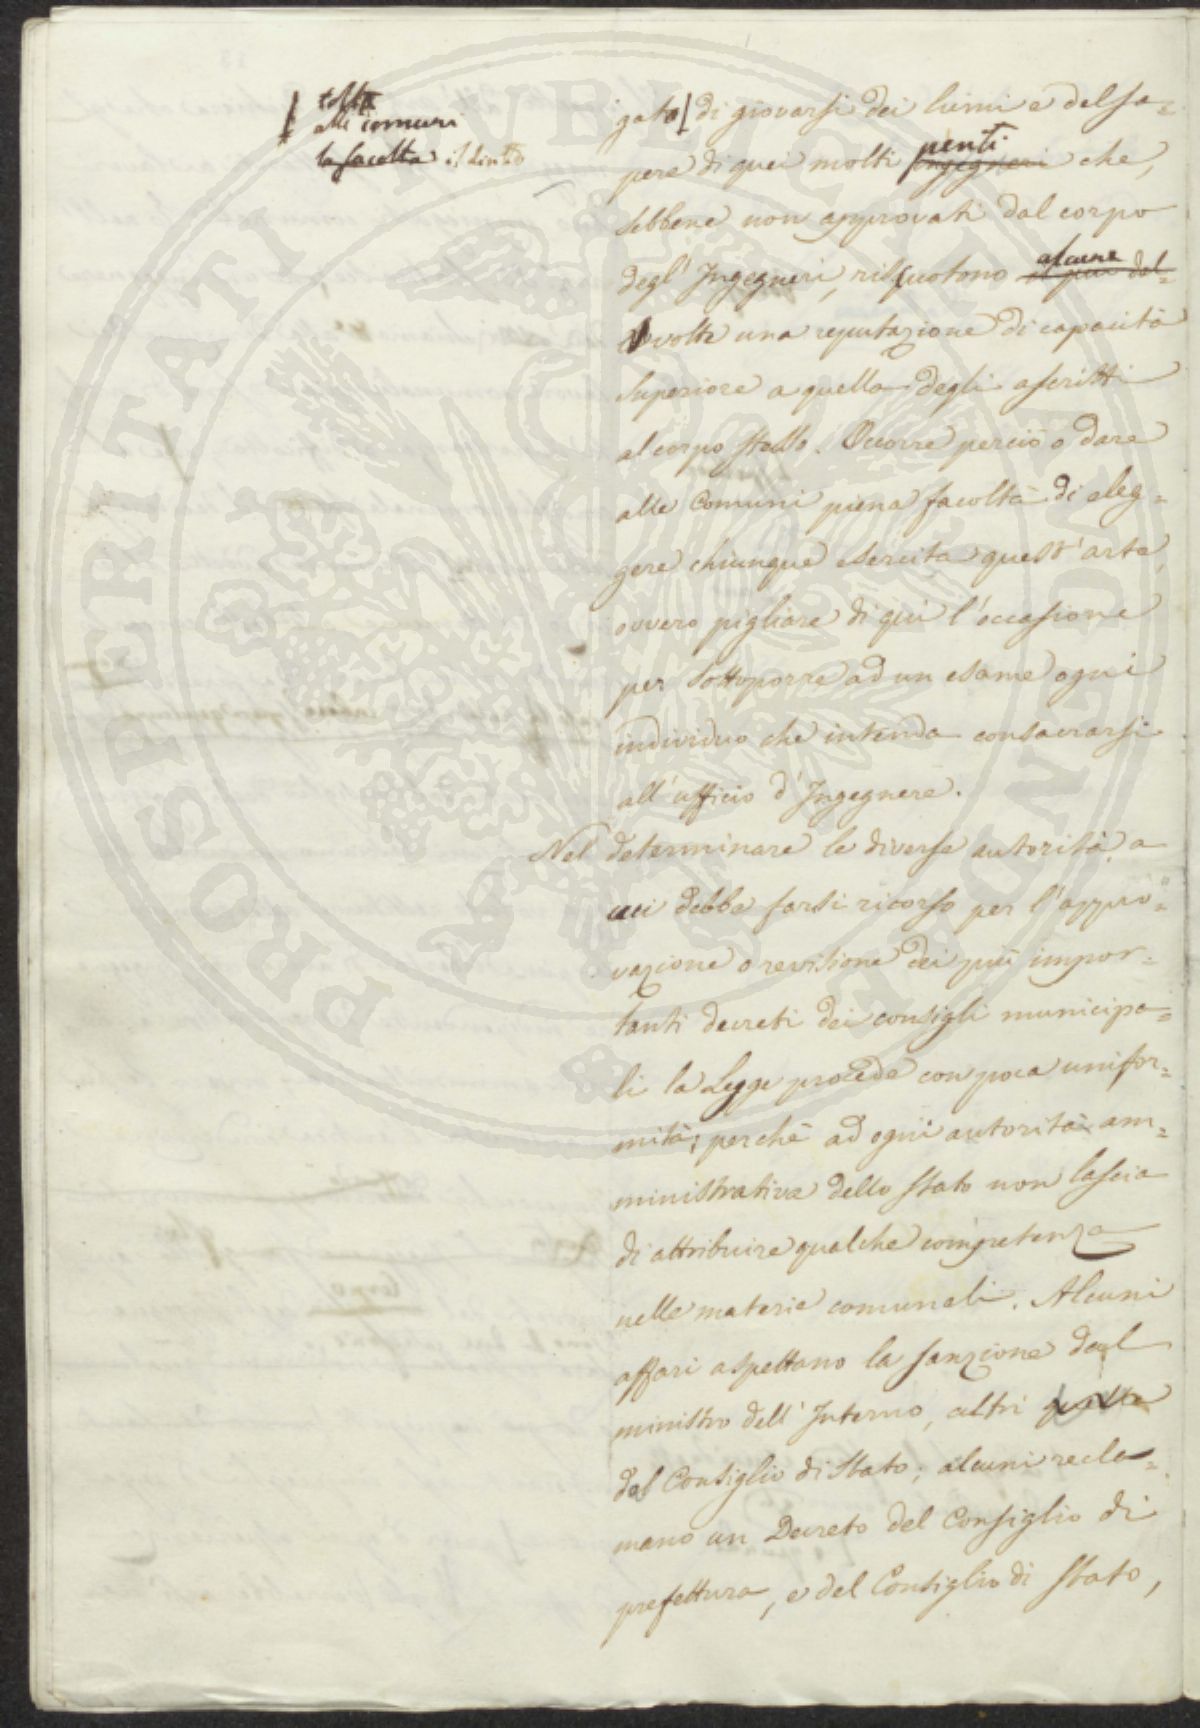 tolta
alle comuni
la facoltà il diritto
gato di giovarsi dei lumi e del sa=
pere di quei molti periti ingegneri che,
sebbene non approvati dal corpo
degl'Ingegneri, riscuotono alcune il più del=
volte una reputazione di capacità
superiore a quella degli ascritti
al corpo stesso. Occorre perciò o dare
alle Comuni piena facoltà di eleg=
gere chiunque esercita quest'arte,
ovvero pigliare di qui l'occasione
per sottoporre ad un esame ogni
individuo che intenda consacrarsi
all'ufficio d'Ingegnere.
Nel determinare le diverse autorità, a
cui debba farsi ricorso per l'appro=
vazione o revisione dei più impor=
tanti decreti dei consigli municipa=
li la Legge procede con poca unifor=
mità; perchè ad ogni autorità am=
ministrativa dello stato non lascia
di attribuire qualche competenza
nelle materie comunali. Alcuni
affari aspettano la sanzione dal
ministro dell'Interno, altri
dal Consiglio di Stato; alcuni recla=
mano un Decreto del Consiglio di
prefettura, e del Consiglio di Stato,
PROSPERITATI PVBLICAE AVGENDAE